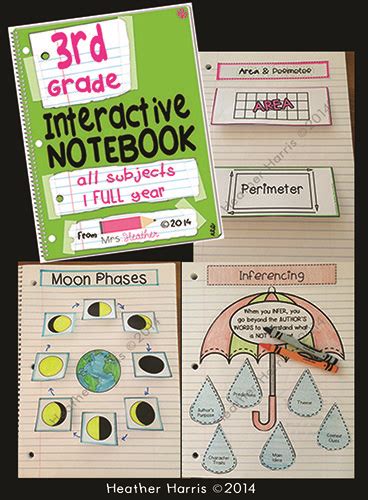 3rd
Grade
Interactive
NOTEBOOK
all subjects
1 FULL year
From Mrs. Heather
©2014
Area & Perimeter
AREA
Perimeter
Heather Harris ©2014
Moon Phases
Heather Harris ©2014
Inferencing
When you INFER, you
go beyond the AUTHOR'S
WORDS to understand what
is NOT
Author's
Purpose
Predictions
Theme
Character
Traits
Main
Idea
Context
Clues
Heather Harris ©2014
Heather Harris ©2014